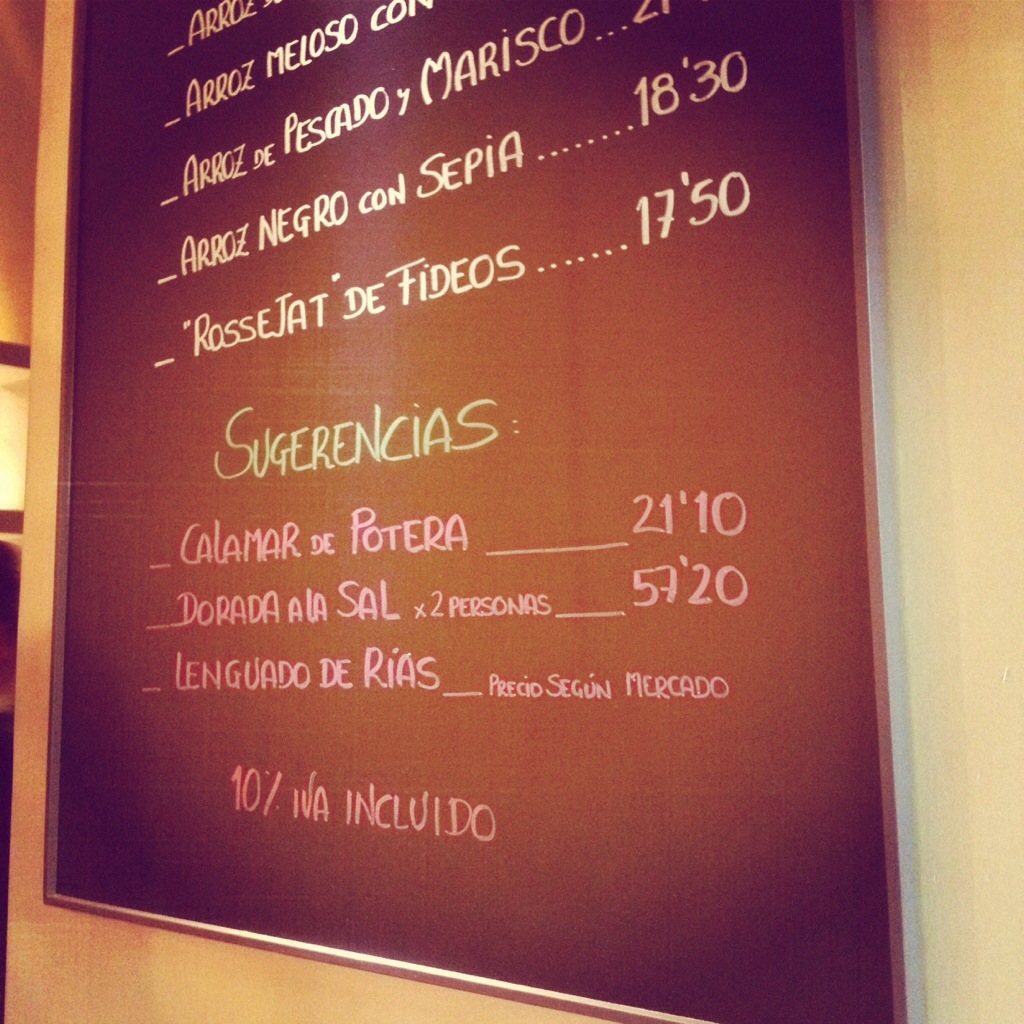 _ ARROZ
_ ARROZ MELOSO CON
_ ARROZ DE PESCADO y MARISCO ...
_ ARROZ NEGRO CON SEPIA ....... 18'30
_ "ROSSEJAT" DE FIDEOS ...... 17'50
SUGERENCIAS:
_ CALAMAR DE POTERA ______ 21'10
_ DORADA A LA SAL x 2 PERSONAS ____ 57'20
_ LENGUADO DE RÍAS __ PRECIO SEGÚN MERCADO
10% IVA INCLUIDO